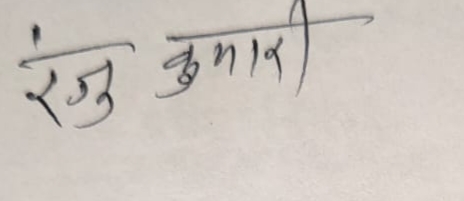 रंजु कुमारी